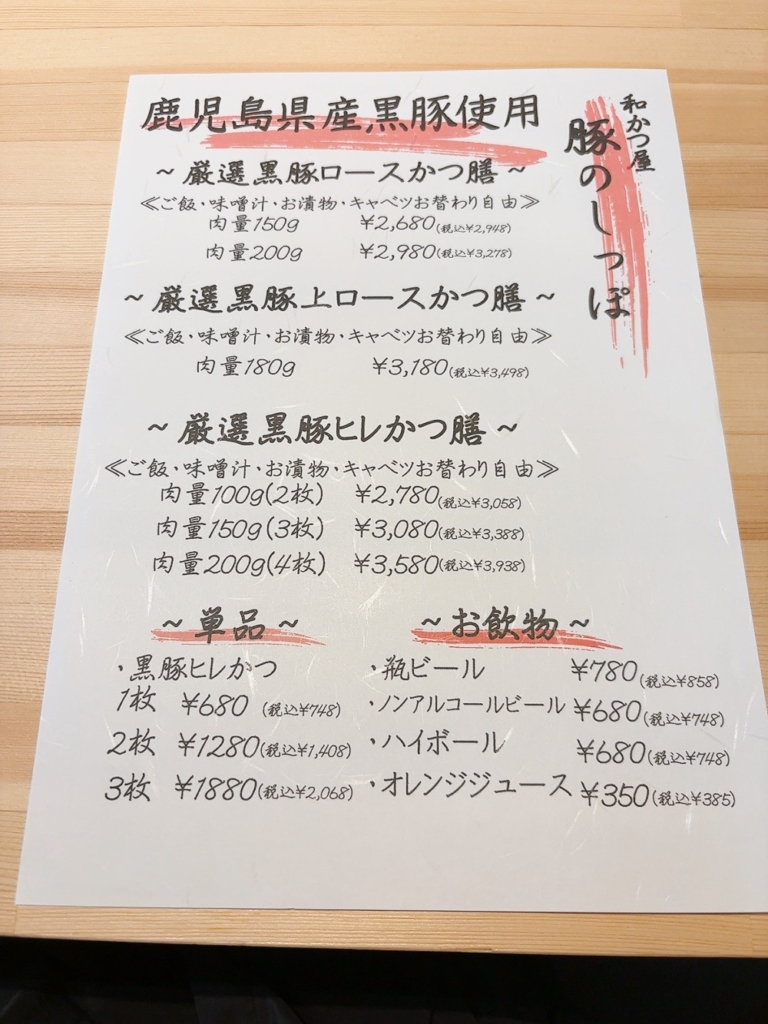 和かつ屋
豚のしっぽ
鹿児島県産黒豚使用
~ 厳選黒豚ロースかつ膳 ~
≪ご飯・味噌汁・お漬物・キャベツお替わり自由≫
肉量150g ¥2,680(税込¥2,948)
肉量200g ¥2,980(税込¥3,278)
~ 厳選黒豚上ロースかつ膳 ~
≪ご飯・味噌汁・お漬物・キャベツお替わり自由≫
肉量180g ¥3,180(税込¥3,498)
~ 厳選黒豚ヒレかつ膳 ~
≪ご飯・味噌汁・お漬物・キャベツお替わり自由≫
肉量100g(2枚) ¥2,780(税込¥3,058)
肉量150g(3枚) ¥3,080(税込¥3,388)
肉量200g(4枚) ¥3,580(税込¥3,938)
~ 単品 ~
・黒豚ヒレかつ
1枚 ¥680 (税込¥748)
2枚 ¥1280(税込¥1,408)
3枚 ¥1880(税込¥2,068)
~ お飲物 ~
・瓶ビール ¥780(税込¥858)
・ノンアルコールビール ¥680(税込¥748)
・ハイボール ¥680(税込¥748)
・オレンジジュース ¥350(税込¥385)